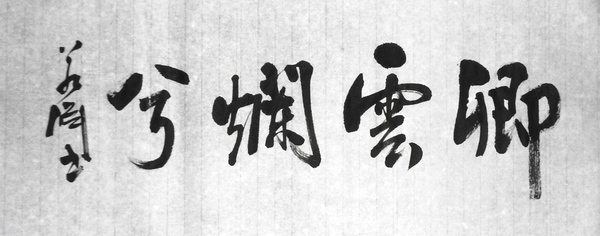 卿雲爛兮